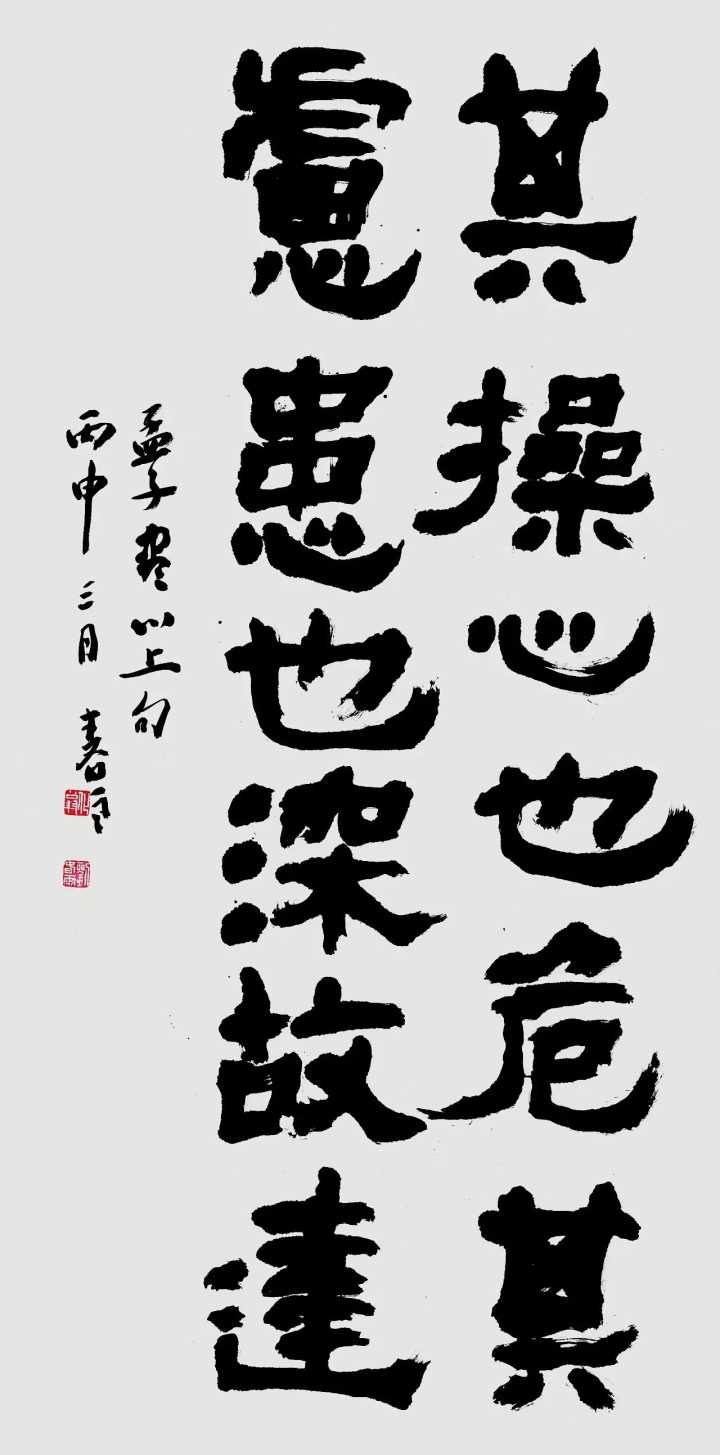 其操心也危其
慮患也深故達
孟子尽心上句
丙申三月春